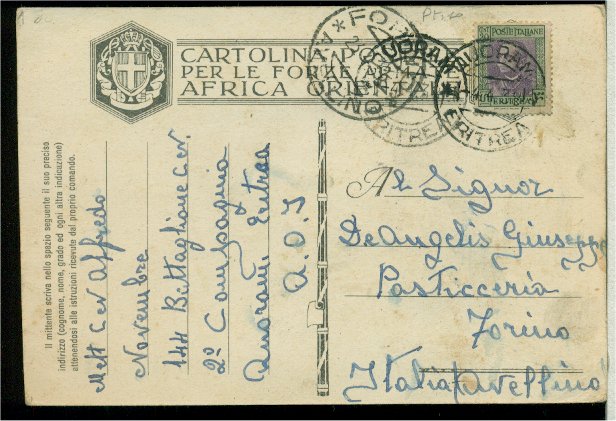 CARTOLINA PO
PER LE FORZE ARMATE
AFRICA ORIENTALE
POSTE ITALIANE
QUORAM
ERITREA
QUORAM
ERITREA
FO
Il mittente scriva nello spazio seguente il suo preciso
indirizzo (cognome, nome, grado ed ogni altra indicazione)
attenendosi alle istruzioni ricevute dal proprio comando.
Alfredo
Novembre
144 Battaglione
2ª Compagnia
Quoram, Eritrea
A.O.I
Al Signor
De Angelis Giuseppe
Pasticceria
Forino
Italia Avellino